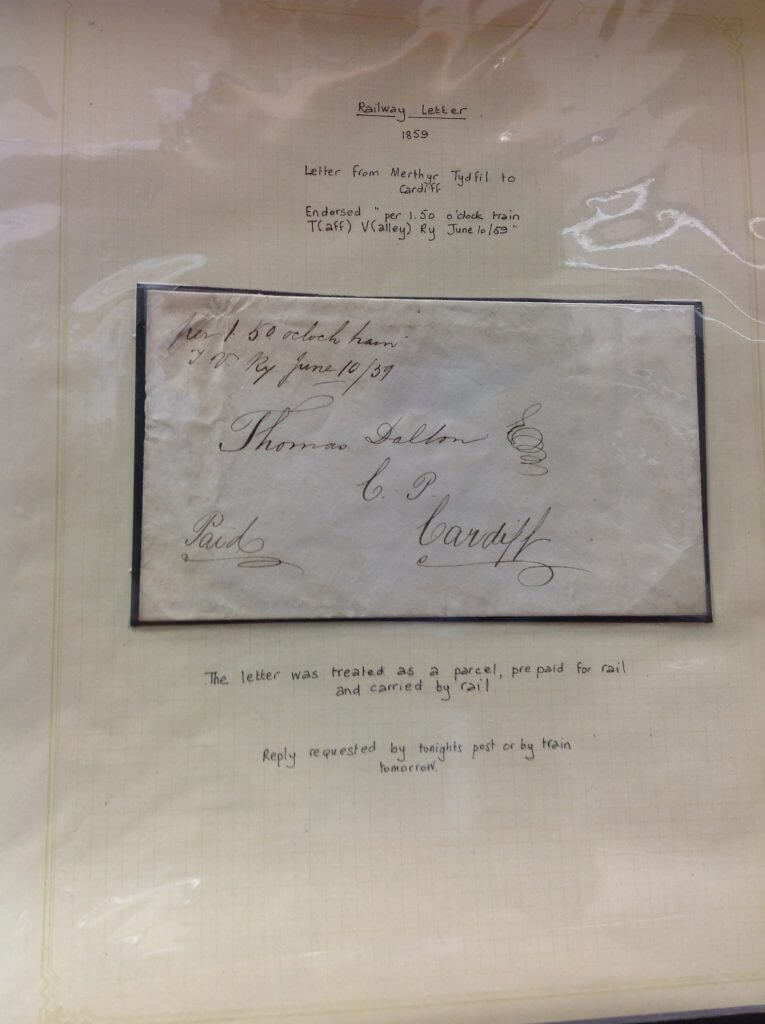 Railway Letter
1859
Letter from Merthyr Tydfil to
Cardiff
Endorsed "per 1.50 o'clock train
T(aff) V(alley) Ry June 10/59"
per 1.50 oclock train
T V Ry June 10/59
Thomas Dalton Esq
C. P.
Paid
Cardiff
The letter was treated as a parcel, pre paid for rail
and carried by rail
Reply requested by tonights post or by train
tomorrow.